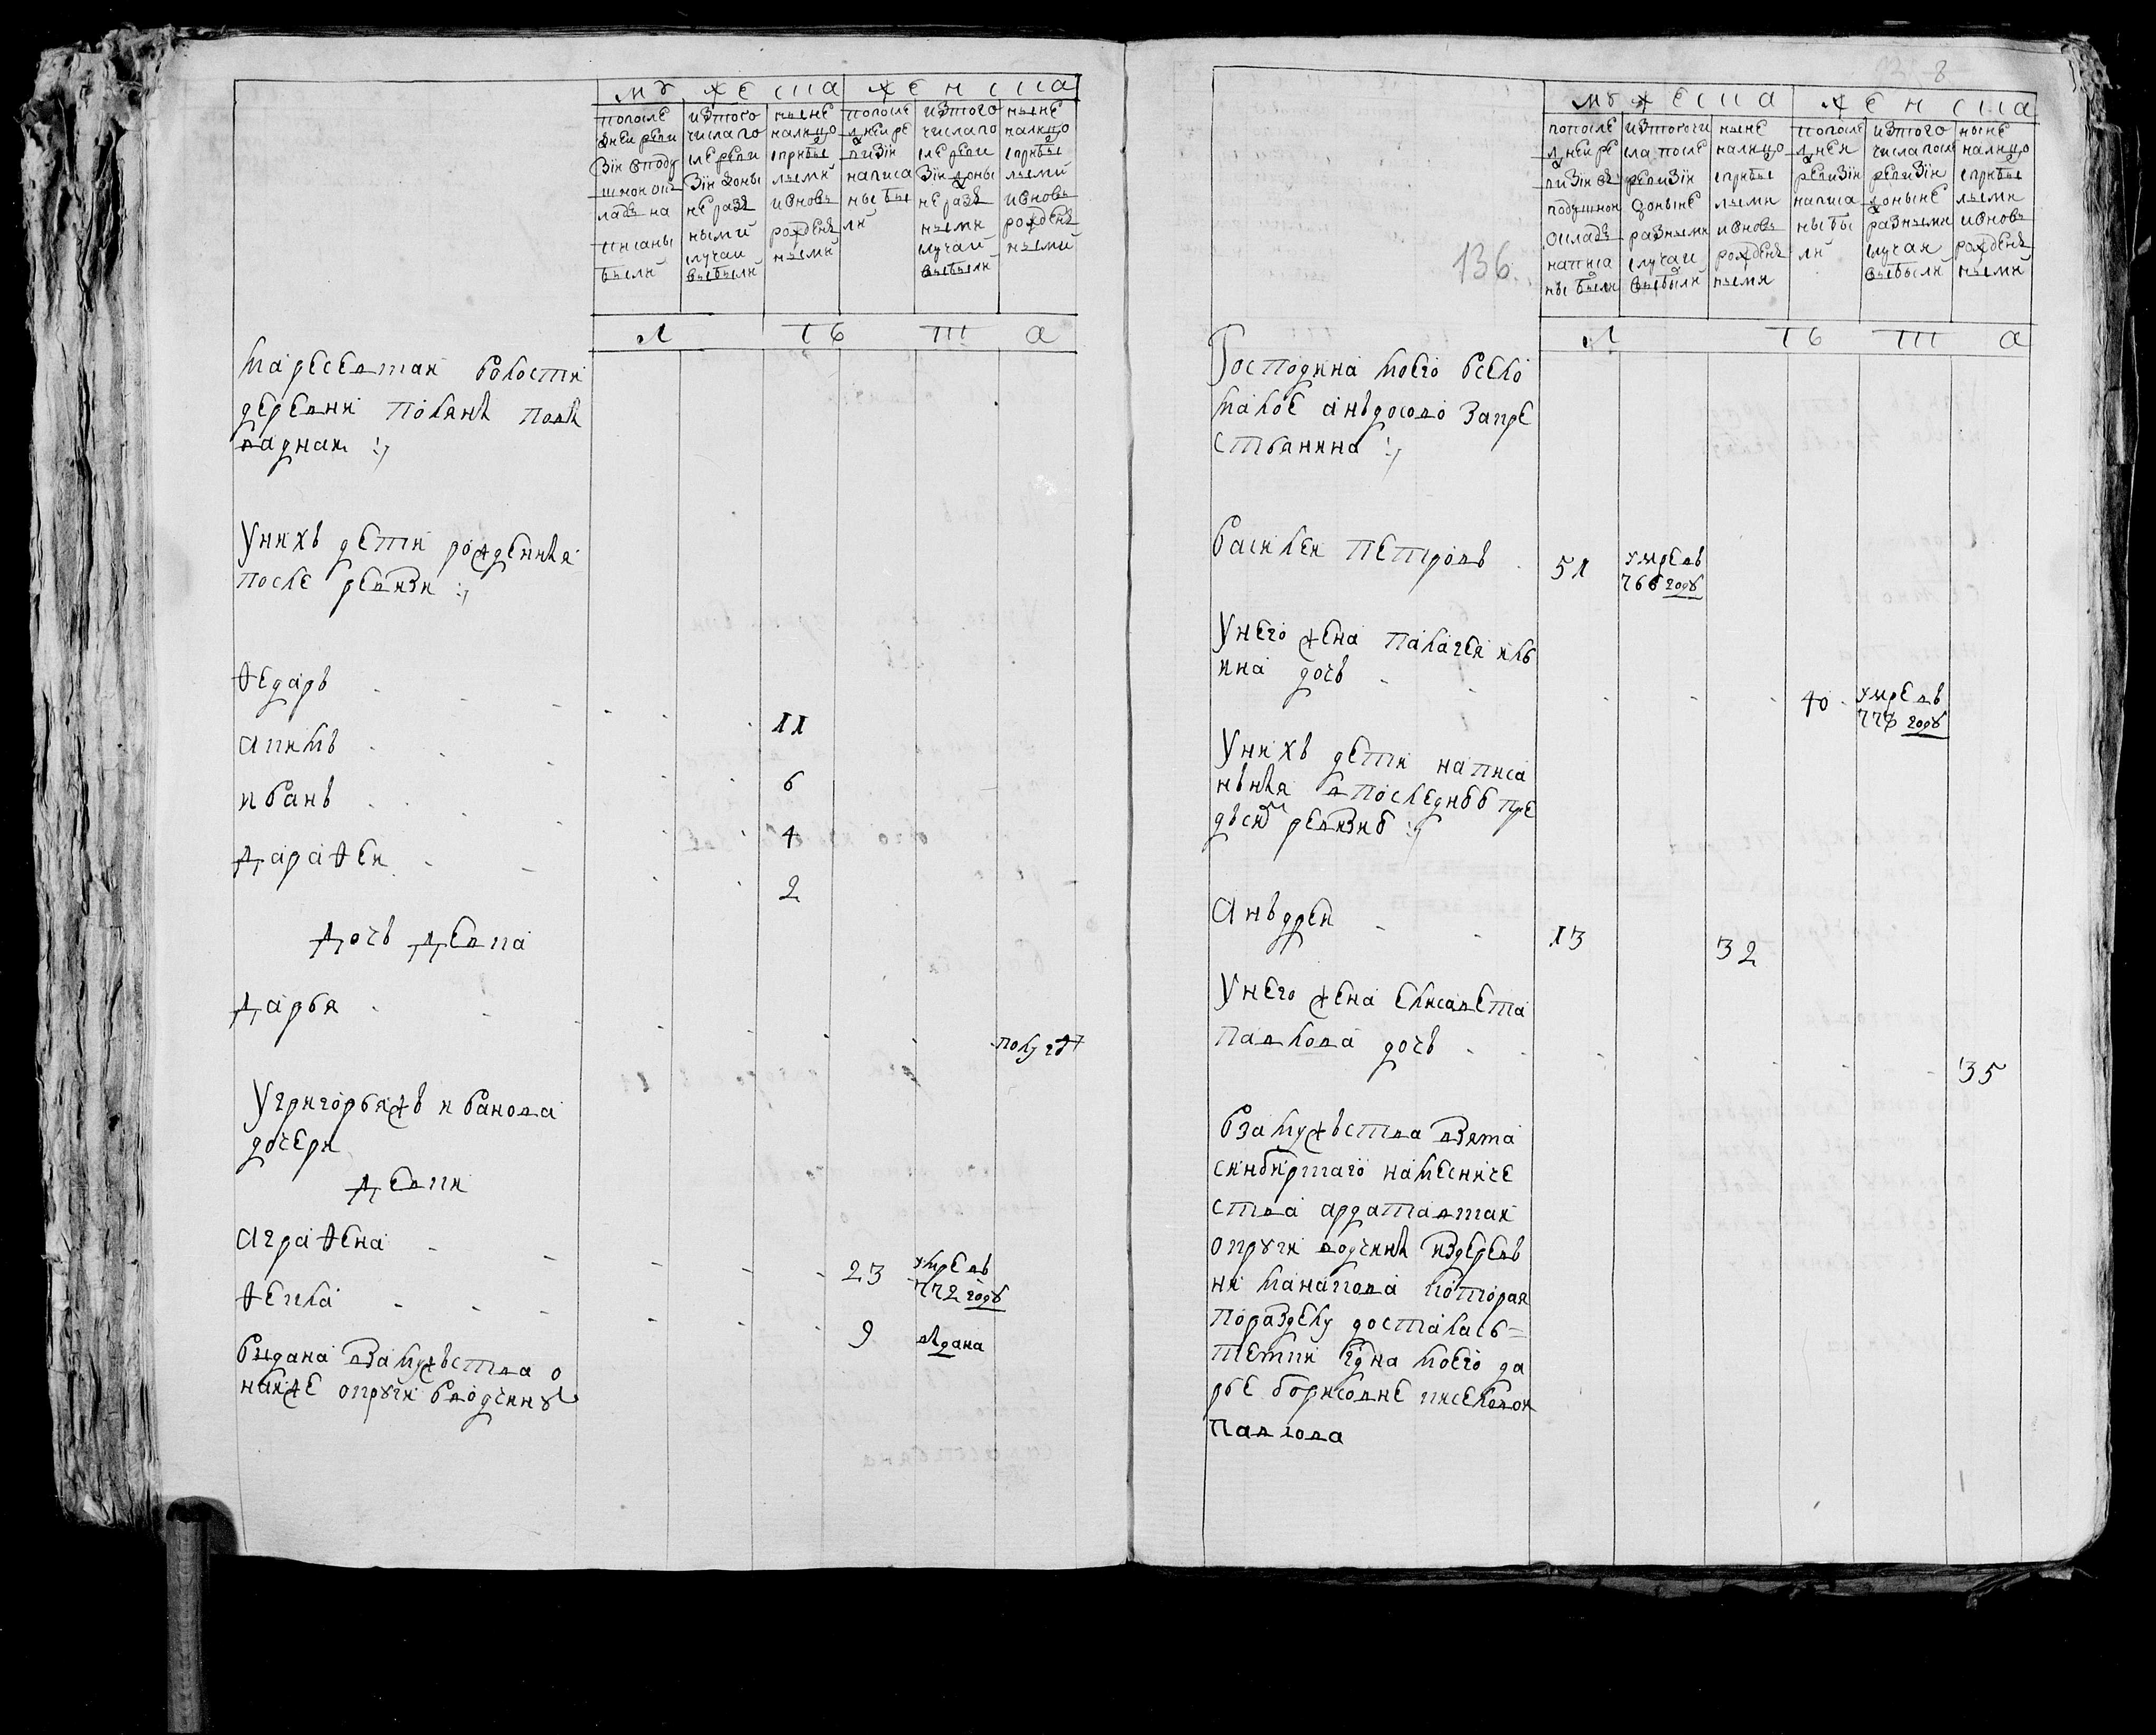 мужеска женска
попосле
днеи реви
зiи вподу
шнои ок
ладъ на
писаны
были
изтого
числа по
сле реви
зiи доны
не раз
ными
случаи
выбыли
ныне
налицо
сприбы
лыми
и вновь
рожден
ными
попосле
дней ре
визiи
написа
ны бы
ли
изтого
числа по
сле реви
зiи доны
не раз
ными
случаи
выбыли
ныне
налицо
сприбы
лыми
и вновь
рожден
ными
л т ъ ш а
маресевской волости
деревни поляны поль
вадная :,
Унихъ дети рожденныя
после ревизи :,
Ѳедаръ 11
акимъ 6
иванъ 4
дараѳеи 2
дочь девка
дарья полугоду
Угригорьяжъ иванова
дочери
девки
аграѳена 23 умре въ
772 году
Ѳекла 9 выдана
выдана взамужъства о
никже округи водчину
8
136
мужеска женска
попосле
дней ре
визiи въ
подушнои
окладъ
написа
ны были
изтогочи
сла после
ревизiи
доныне
разными
случаи
выбыли
ныне
налицо
сприбы
лыми
и вновь
рожден
ными
попосле
дней
ревизiи
написа
ны бы
ли
изтого
числа после
ревизiи
доныне
разными
случаи
выбыли
ныне
налицо
сприбы
лыми
и вновь
рожден
ными
л т ъ ш а
Господина моего всево
малое анъдосово запре
стьянина :,
василеи петровъ 51 умре въ
766 году
Унего жена палагея иль
ина дочь 40 умре въ
778 году
Унихъ дети написа
нъныя в последнѣѣ пре
дъсиѣ ревизиѣ :,
анъдреи 13 32
Унего жена елисавета
павлова дочь 35
взамужъства взята
синбирскаго намесниче
ства ардатавской
округи водчины издеревъ
ни манакова которая
поразделу досталась=
тетки гдна моего да
рье борисовне киселевои
павлова